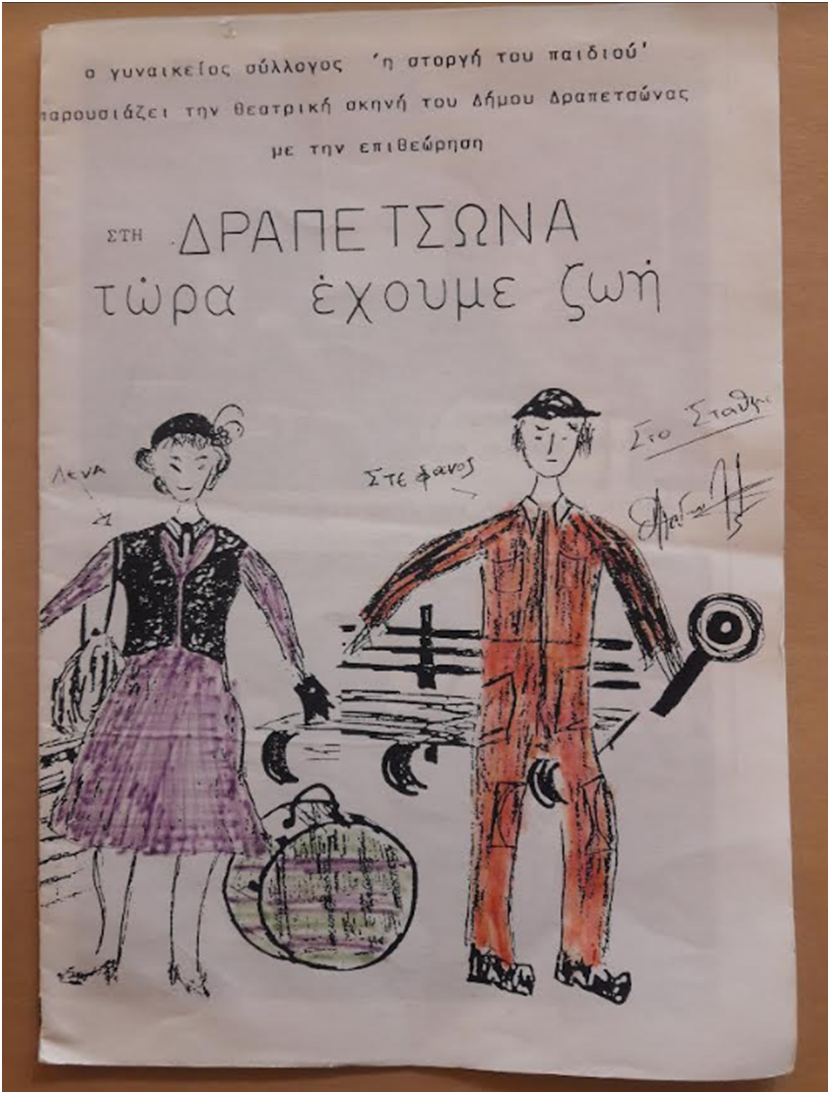 ο γυναικείος σύλλογος 'η στοργή του παιδιού'
παρουσιάζει την θεατρική σκηνή του Δήμου Δραπετσώνας
με την επιθεώρηση
ΣΤΗ ΔΡΑΠΕΤΣΩΝΑ
τώρα έχουμε ζωή
Στο Σταθη
Λενα
Στεφανος